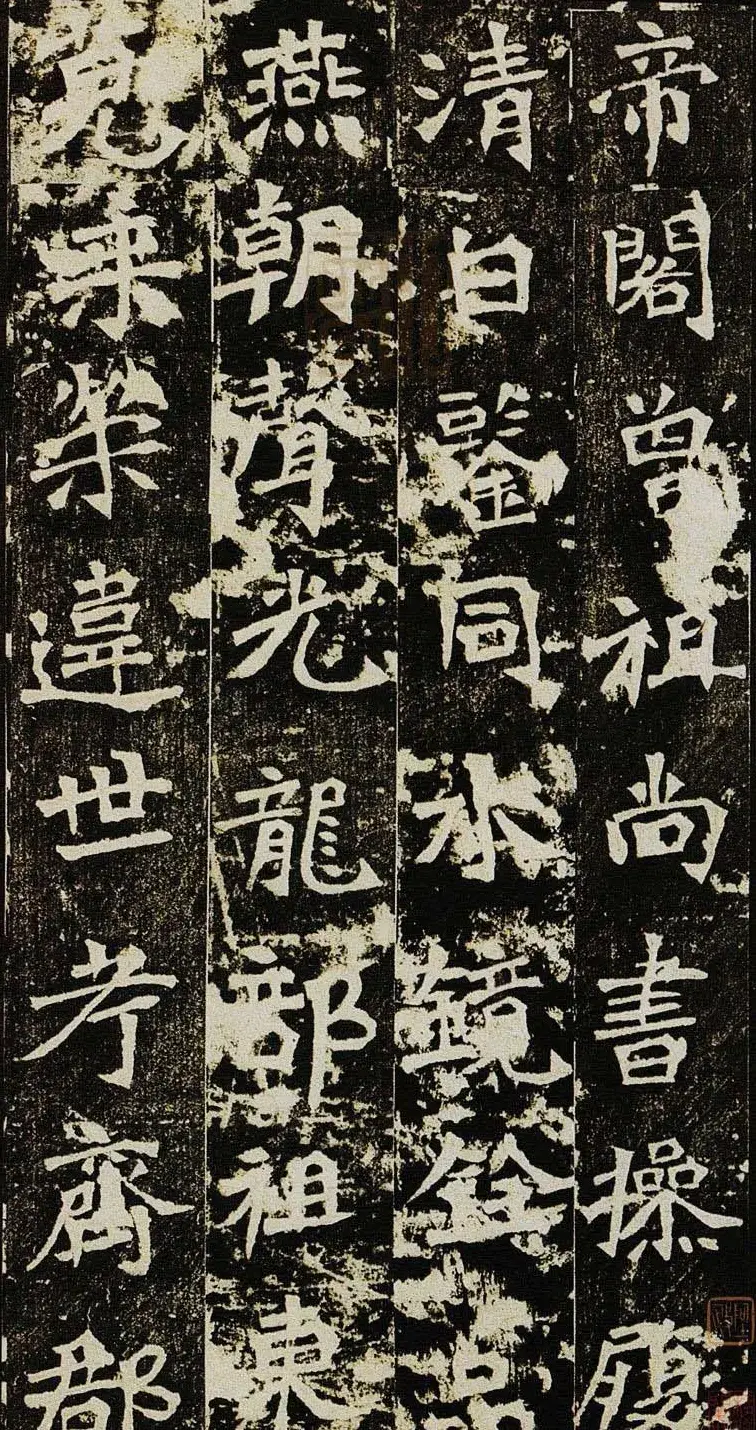 帝閣曾祖尚書操履
清白鑒同水鏡銓品
燕朝聲光龍部祖東
莞乘榮違世考齊郡